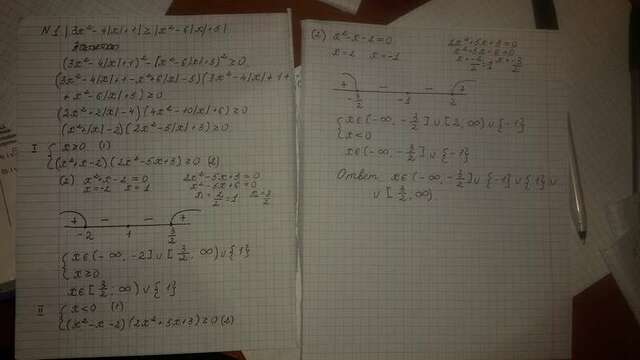 N1 |3x²-4|x|+1| ≥ |x²-6|x|+5|
(3x²-4|x|+1)²-(x²-6|x|+5)² ≥ 0
(3x²-4|x|+1-x²+6|x|-5)(3x²-4|x|+1+
+x²-6|x|+5) ≥ 0
(2x²+2|x|-4)(4x²-10|x|+6) ≥ 0
(x²+|x|-2)(2x²-5|x|+3) ≥ 0
I { x ≥ 0 (1)
{ (x²+x-2)(2x²-5x+3) ≥ 0 (2)
(2) x²+x-2=0 2x²-5x+3=0
x=-2 x=1 x²-5x+6=0
x=2/2=1 x=3/2
+ - - +
-2 1 3/2
{ x∈(-∞, -2]∪[3/2, ∞)∪{1}
{ x ≥ 0
x∈[3/2, ∞)∪{1}
II { x<0 (1)
{ (x²-x-2)(2x²+5x+3) ≥ 0 (2)
(2) x²-x-2=0 2x²+5x+3=0
x=2 x=-1 x²+5x+6=0
+ - - +
-3/2 -1 2
{ x∈(-∞, -3/2]∪[2, ∞)∪{-1}
{ x<0
x∈(-∞, -3/2]∪{-1}
Ответ x∈(-∞, -3/2]∪{-1}∪{1}∪
∪[3/2, ∞).